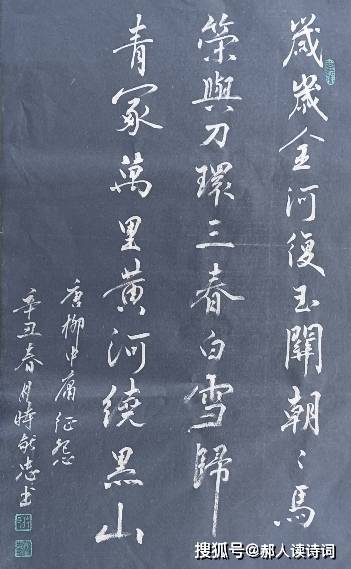 歲歲金河復玉關朝〻馬
策與刀環三春白雪歸
青冢萬里黃河繞黑山
唐柳中庸征怨
辛丑春月時忠書
搜狐号@郝人读诗词